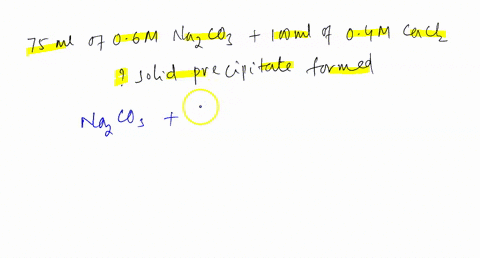 75 ml of 0.6M Na₂CO₃ + 100ml of 0.4M CaCl₂
? solid precipitate formed
Na₂CO₃ +